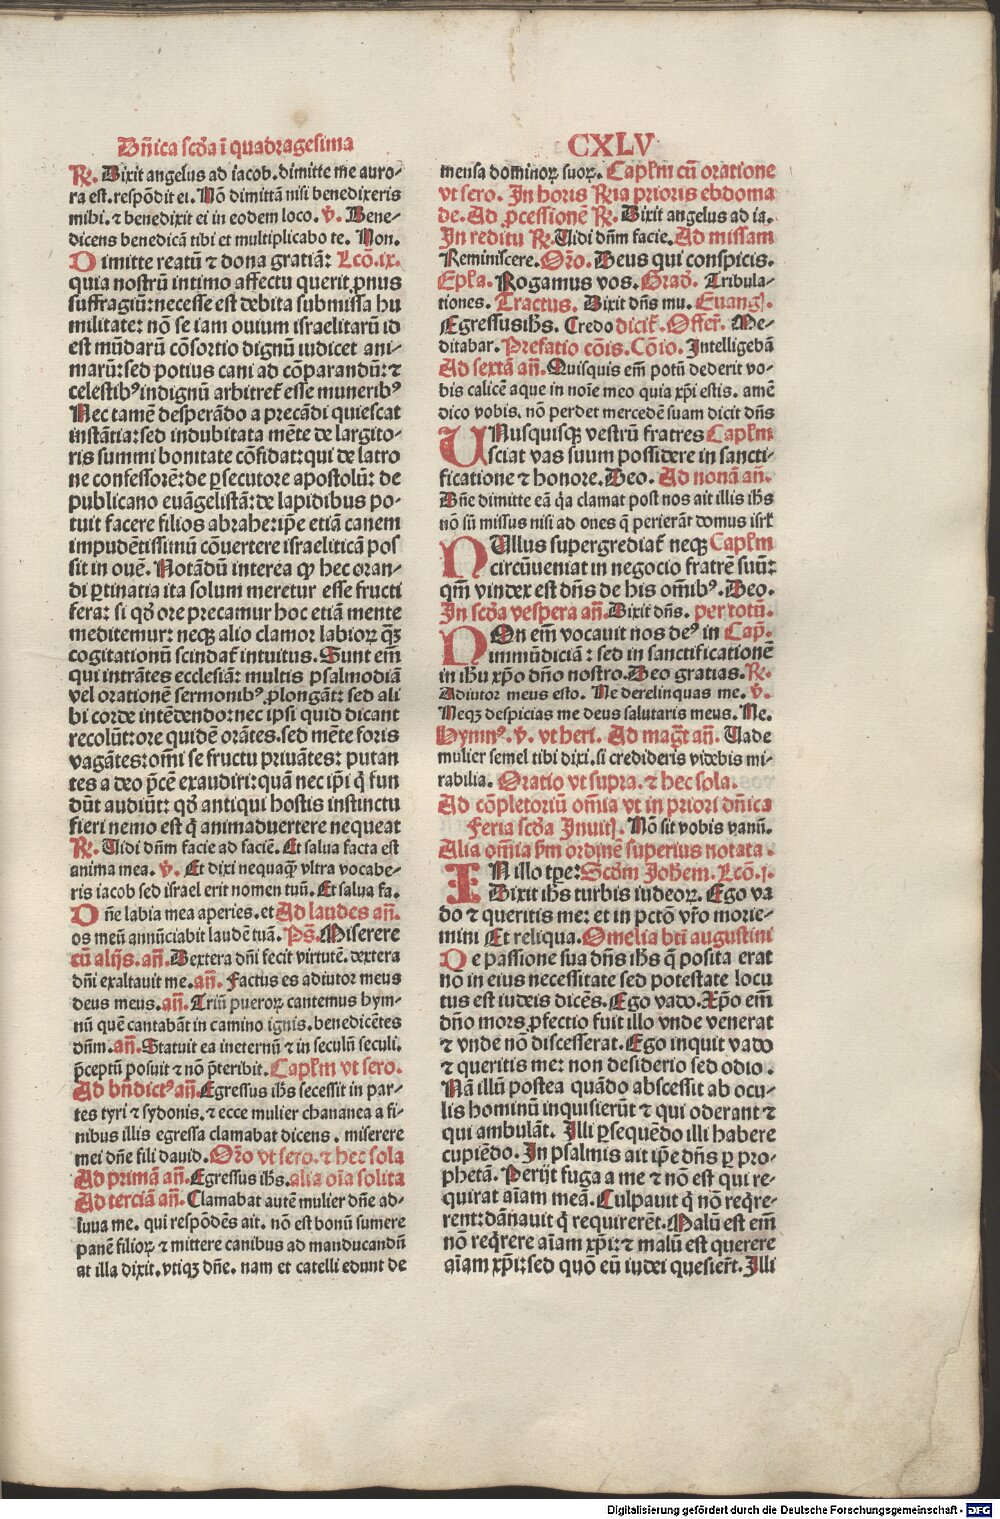 Dñica scďa ī quadragesima
CXLV
℟. Dixit angelus ad iacob. dimitte me auro-
ra est. respōdit ei. Nō dimittā nisi benedixeris
mihi. ⁊ benedixit ei in eodem loco. ℣. Bene-
dicens benedicā tibi et multiplicabo te. Non.
Dimitte reatū ⁊ dona gratiā: Lcō.ix.
quia nostrū intimo affectu querit ꝓnus
suffragiū: necesse est debita submissa hu
militate: nō se iam ouium israelitarū id
est mūdarū cōsortio dignū iudicet ani-
marū: sed potius cani ad cōparandū: ⁊
celestibꝰ indignū arbitret᷑ esse muneribꝰ
Nec tamē desperādo a precādi quiescat
instātia: sed indubitata mēte de largito-
ris summi bonitate cōfidat: qui de latro
ne confessorē: de ꝑsecutore apostolū: de
publicano euāgelistā: de lapidibus po-
tuit facere filios abrahe: ip̄e etiā canem
impudētissimū cōuertere israeliticā pos
sit in ouē. Notādū interea ꝙ hec oran-
di ꝑtinatia ita solum meretur esse fructi
fera: si qď ore precamur hoc etiā mente
meditemur: neqꝫ alio clamor labioꝝ q̄ꝫ
cogitationū scindat᷑ intuitus. Sunt em̄
qui intrātes ecclesiā: multis psalmodiā
vel orationē sermonibꝰ ꝓlongāt: sed ali
bi corde intēdendo: nec ipsi quid dicant
recolūt: ore quidē orātes. sed mēte foris
vagātes: om̄i se fructu priuātes: putan
tes a deo p̄cē exaudiri: quā nec ip̄i q̇ fun
dūt audiūt: qď antiqui hostis instinctu
fieri nemo est q̇ animaduertere nequeat
℟. Uidi dn̄m facie ad faciē. Et salua facta est
anima mea. ℣. Et dixi nequaꝗ̄ vltra vocabe-
ris iacob sed israel erit nomen tuū. Et salua fa.
Dñe labia mea aperies. et Ad laudes añ.
os meū annūciabit laudē tuā. Ps̄. Miserere
cū alijs. añ. Dextera dn̄i fecit virtutē. dextera
dn̄i exaltauit me. añ. Factus es adiutor meus
deus meus. añ. Triū pueroꝝ cantemus hym-
nū quē cantabāt in camino ignis. benedicētes
dn̄m. añ. Statuit ea ineternū ⁊ in seculū seculi.
p̄ceptū posuit ⁊ nō p̄teribit. Capľm vt sero.
Ad bn̄dictꝰ añ. Egressus ihs̄ secessit in par-
tes tyri ⁊ sydonis. ⁊ ecce mulier chananea a fi-
nibus illis egressa clamabat dicens. miserere
mei dn̄e fili dauid. Oro vt sero. ⁊ hec sola
Ad primā añ. Egressus ihs̄. alia oīa solita
Ad terciā añ. Clamabat autē mulier dn̄e ad-
iuua me. qui respōdēs ait. nō est bonū sumere
panē filioꝝ ⁊ mittere canibus ad manducandū
at illa dixit. vtiqꝫ dn̄e. nam et catelli edunt de
mensa dominoꝝ suoꝝ. Capľm cū oratione
vt sero. In horis ℟ria prioris ebdoma
de. Ad ꝓcessionē ℟. Dixit angelus ad ia.
In reditu ℟. Uidi dn̄m facie. Ad missam
Reminiscere. Oro. Deus qui conspicis.
Epľa. Rogamus vos. Grad. Tribula-
tiones. Tractus. Dixit dn̄s mu. Euangl̄.
Egressus ihs̄. Credo dicit᷑. Offer̄. Me-
ditabar. Prefatio cōis. Cōio. Intelligebā
Ad sextā añ. Quisquis em̄ potū dederit vo-
bis calicē aque in noīe meo quia xp̄i estis. amē
dico vobis. nō perdet mercedē suam dicit dn̄s
UNusquisqꝫ vestrū fratres Capľm
sciat vas suum possidere in sancti-
ficatione ⁊ honore. Deo. Ad nonā añ.
Dn̄e dimitte eā q̇a clamat post nos ait illis ihs̄
nō sū missus nisi ad oues q̄ perierāt domus isrľ
NUllus supergrediat᷑ neqꝫ Capľm
circūueniat in negocio fratrē suū:
qm̄ vindex est dn̄s de his om̄ibꝰ. Deo.
In scďa vespera añ. Dixit dn̄s. per totū.
NOn em̄ vocauit nos deꝰ in Cap̄.
immūdiciā: sed in sanctificationē
in ihu xp̄o dn̄o nostro. Deo gratias. ℟.
Adiutor meus esto. Ne derelinquas me. ℣.
Neqꝫ despicias me deus salutaris meus. Ne.
Hymnꝰ. ℣. vt heri. Ad maḡt añ. Uade
mulier semel tibi dixi. si credideris videbis mi-
rabilia. Oratio vt supra. ⁊ hec sola.
Ad cōpletoriū om̄ia vt in priori dn̄ica
Feria scďa Inuitľ. Nō sit vobis vanū.
Alia om̄ia ẜm ordinē superius notata.
IN illo tp̄e: Scďm Johem. Lcō.j.
Dixit ihs̄ turbis iudeoꝝ. Ego va
do ⁊ queritis me: et in pctō vr̄o morie-
mini Et reliqua. Omelia bti augustini
De passione sua dn̄s ihs̄ q̄ posita erat
nō in eius necessitate sed potestate locu
tus est iudeis dicēs. Ego vado. Xp̄o em̄
dn̄o mors ꝓfectio fuit illo vnde venerat
⁊ vnde nō discesserat. Ego inquit vado
⁊ queritis me: non desiderio sed odio.
Nā illū postea quādo abscessit ab ocu-
lis hominū inquisierūt ⁊ qui oderant ⁊
qui ambulāt. Illi ꝑsequēdo illi habere
cupiēdo. In psalmis ait ip̄e dn̄s ꝑ pro-
phetā. Perijt fuga a me ⁊ nō est qui re-
quirat aīam meā. Culpauit q̇ nō req̇re-
rent: dānauit q̇ requirerēt. Malū est em̄
nō req̇rere aīam xp̄i: ⁊ malū est querere
aīam xp̄i: sed quō eū iudei quesier̄t. Illi
Digitalisierung gefördert durch die Deutsche Forschungsgemeinschaft - DFG